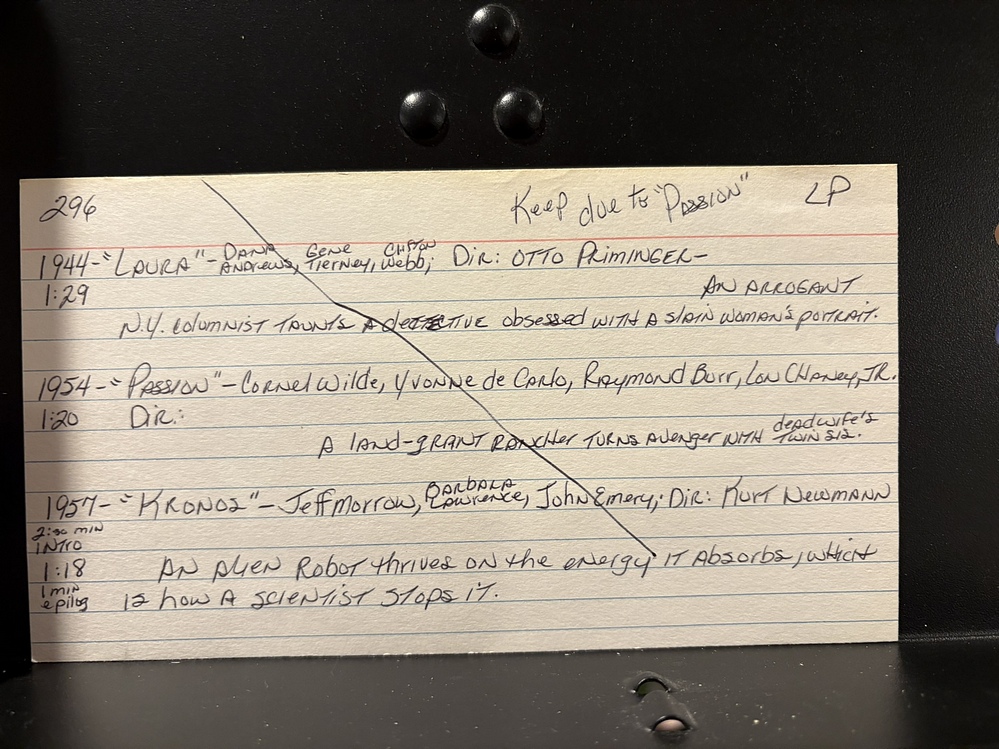 296 Keep due to "Passion" LP
1944-"LAURA"-DANA ANDREWS, Gene Tierney, Clifton Webb; Dir: OTTO PRIMINGER-
1:29 AN ARROGANT
N.Y. columnist TAUNTS A detective obsessed WITH A slain woman's portrait.
1954-"PASSION"-Cornel Wilde, Yvonne de Carlo, Raymond Burr, Lon Chaney, JR.
1:20 DIR:
A land-grant RANCHer TURNS Avenger WITH dead wife's TWIN SIS.
1957-"KRONOS"-Jeff Morrow, BARBARA Lawrence, John Emery; Dir: Kurt Newmann
2:30 min
INTRO
1:18 AN Alien Robot thrives on the energy IT Absorbs, which
1 min
epilog is how A scientist stops it.